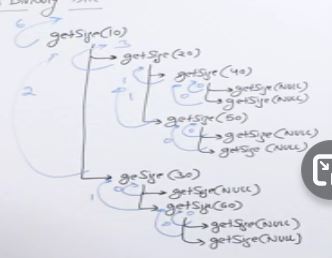 Binary Tree
6
getSize(10)
3
getSize(20)
1
getSize(40)
0
getSize(NULL)
0
getSize(NULL)
1
getSize(50)
0
getSize(NULL)
0
getSize(NULL)
2
getSize(30)
0
getSize(NULL)
1
getSize(60)
0
getSize(NULL)
0
getSize(NULL)